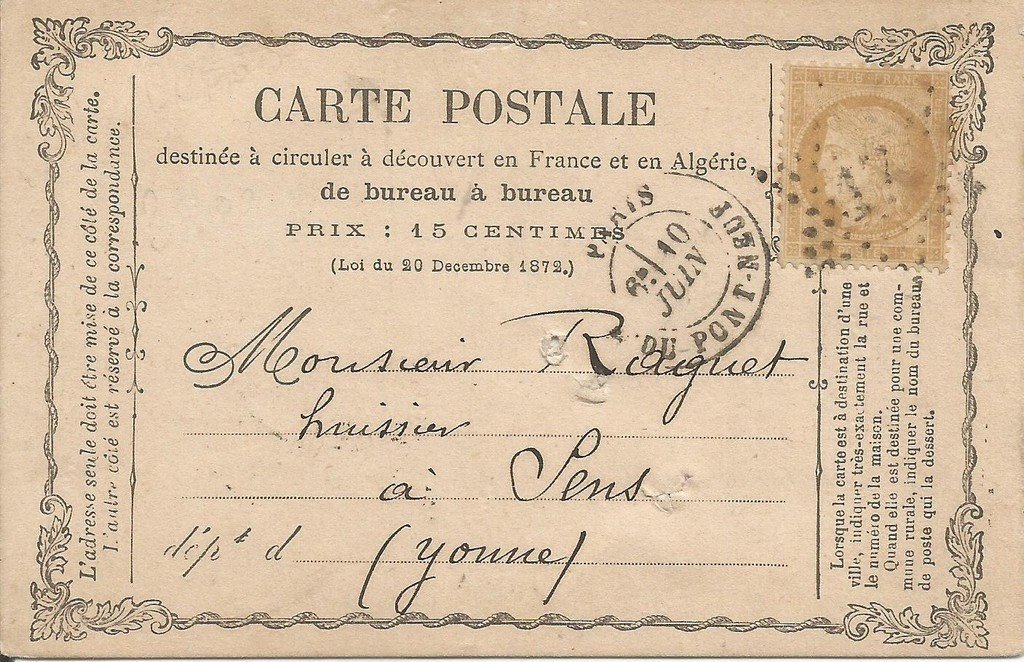 CARTE POSTALE
destinée à circuler à découvert en France et en Algérie,
de bureau à bureau
PRIX : 15 CENTIMES
(Loi du 20 Decembre 1872.)
L'adresse seule doit être mise de ce côté de la carte.
L'autre côté est réservé à la correspondance.
REPUB FRANC
PARIS
10
JUIN
DU PONT-NEUF
Monsieur Raguet
huissier
à Sens
dépt d (Yonne)
Lorsque la carte est à destination d'une
ville, indiquer très-exactement la rue et
le numéro de la maison.
Quand elle est destinée pour une com-
mune rurale, indiquer le nom du bureau
de poste qui la dessert.